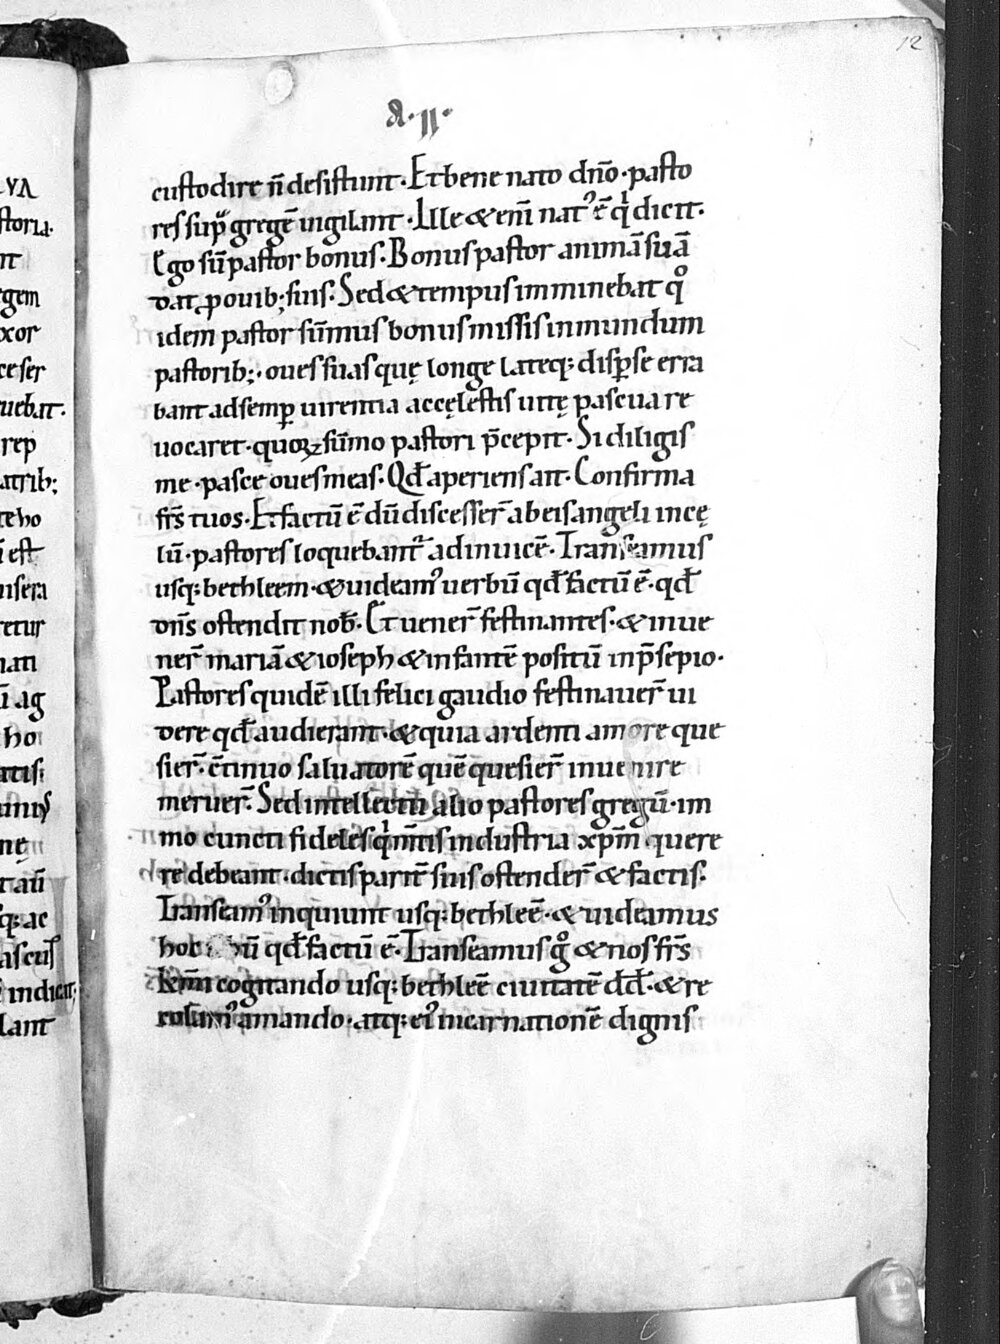 12
A·II·
custodire n̄ desistunt· Et bene nato dn̄o· pasto
res sup̄ gregē uigilant· Ille & eni̅ nat᾿ ē q̍ dicit·
Ego sū pastor bonus· Bonus pastor animā suā
dat ꝓ ouib; suis· Sed & tempus imminebat qͦ
idem pastor sūmus bonus missis in mundum
pastorib;· oues suas quę longe lateq; disꝑse erra
bant ad semꝑ uirentia accęlestis uitę pascua re
uocaret· quoꝝ sūmo pastori p̄cepit· Si diligis
me· pasce oues meas· Qđ aperiens ait· Confirma
fr̄s tuos· Et factū ē dū discesser̄ ab eis angeli in cę
lū· pastores loquebant᷑ adinuicē· Transeamus
usq; bethleem· & uideam᾿ uerbū qđ factū ē· qđ
dn̄s ostendit nob̄· Et uener̄ festinantes· & inue
ner̄ mariā & ioseph & infantē positū in p̄sepio·
Pastores quidē illi felici gaudio festinauer̄ ui
dere qđ audierant· & quia ardenti amore que
sier̄· c̄tinuo saluatorē quē quesier̄ inuenire
meruer̄· Sed intellectū alio pastores gregū· im
mo cuncti fideles q̍ m̄tis industria xp̄m quere
re debeant· dictis parit̄ suis ostender̄ & factis·
Transeam᾿ inquiunt usq; bethleē· & uideamus
hoc uū qđ factū ē· Transeamus gͦ & nos fr̄s
km̄i cogitando usq; bethleē ciuitatē dđ· & re
colam᾿ amando· atq; ei᾿ incarnationē dignis